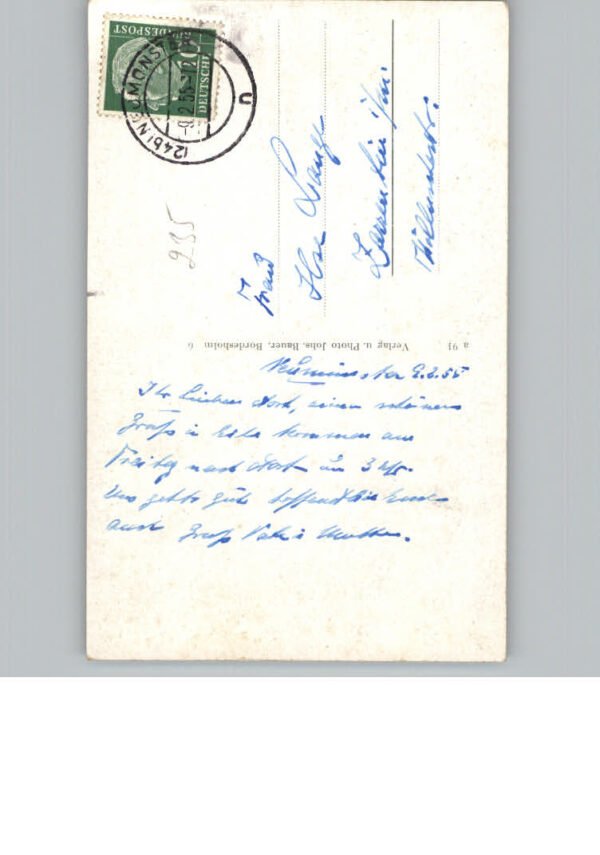 DEUTSCHE BUNDESPOST
10
(24b) NEUMÜNSTER
-9.2.55-
U
235
Frau
Ilse Lange
Zarrentin i/M.
a 91 Verlag u. Photo Johs. Bauer, Bordesholm 6
Neumünster 9.2.55
Ihr Lieben dort, einen schönen
Gruß in Eile kommen am
Freitag nach dort um 3 Uhr.
Uns geht's gut hoffentlich Euch
auch Gruß Vati u Mutti.